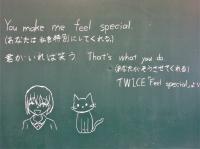 You make me feel special.
(あなたは私を特別にしてくれる)
君がいれば笑う That's what you do
(あなたがそうさせてくれる)
TWICE「Feel special」より